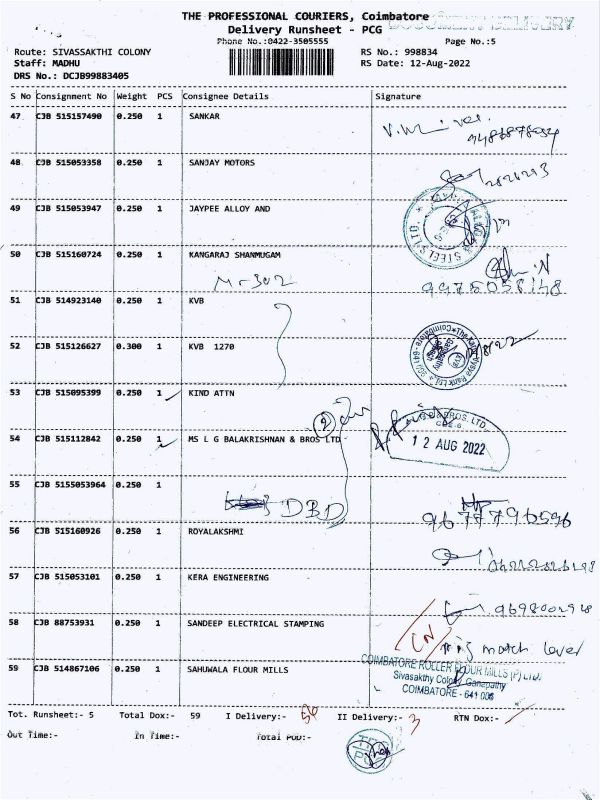 THE PROFESSIONAL COURIERS, Coimbatore
DOCUMENT DELIVERY
Delivery Runsheet - PCG
Phone No.:0422-3505555
Page No.:5
Route: SIVASSAKTHI COLONY
RS No.: 998834
Staff: MADHU
RS Date: 12-Aug-2022
DRS No.: DCJB99883405
S No Consignment No Weight PCS Consignee Details Signature
47 CJB 515157490 0.250 1 SANKAR
48 CJB 515053358 0.250 1 SANJAY MOTORS
49 CJB 515053947 0.250 1 JAYPEE ALLOY AND
STEELS
50 CJB 515160724 0.250 1 KANGARAJ SHANMUGAM
9975058148
51 CJB 514923140 0.250 1 KVB
52 CJB 515126627 0.300 1 KVB 1270
53 CJB 515095399 0.250 1 KIND ATTN
54 CJB 515112842 0.250 1 MS L G BALAKRISHNAN & BROS LTD
& BROS. LTD.
12 AUG 2022
55 CJB 5155053964 0.250 1
DBD
9677796596
56 CJB 515160926 0.250 1 ROYALAKSHMI
57 CJB 515053101 0.250 1 KERA ENGINEERING
58 CJB 88753931 0.250 1 SANDEEP ELECTRICAL STAMPING
CN
mis match cover
59 CJB 514867106 0.250 1 SAHUWALA FLOUR MILLS
COIMBATORE ROLLER FLOUR MILLS (P) LTD.
Sivasakthy Colony, Ganapathy
COIMBATORE - 641 006
Tot. Runsheet:- 5 Total Dox:- 59 I Delivery:- 56 II Delivery:- 3 RTN Dox:-
Out Time:- In Time:- Total POD:-